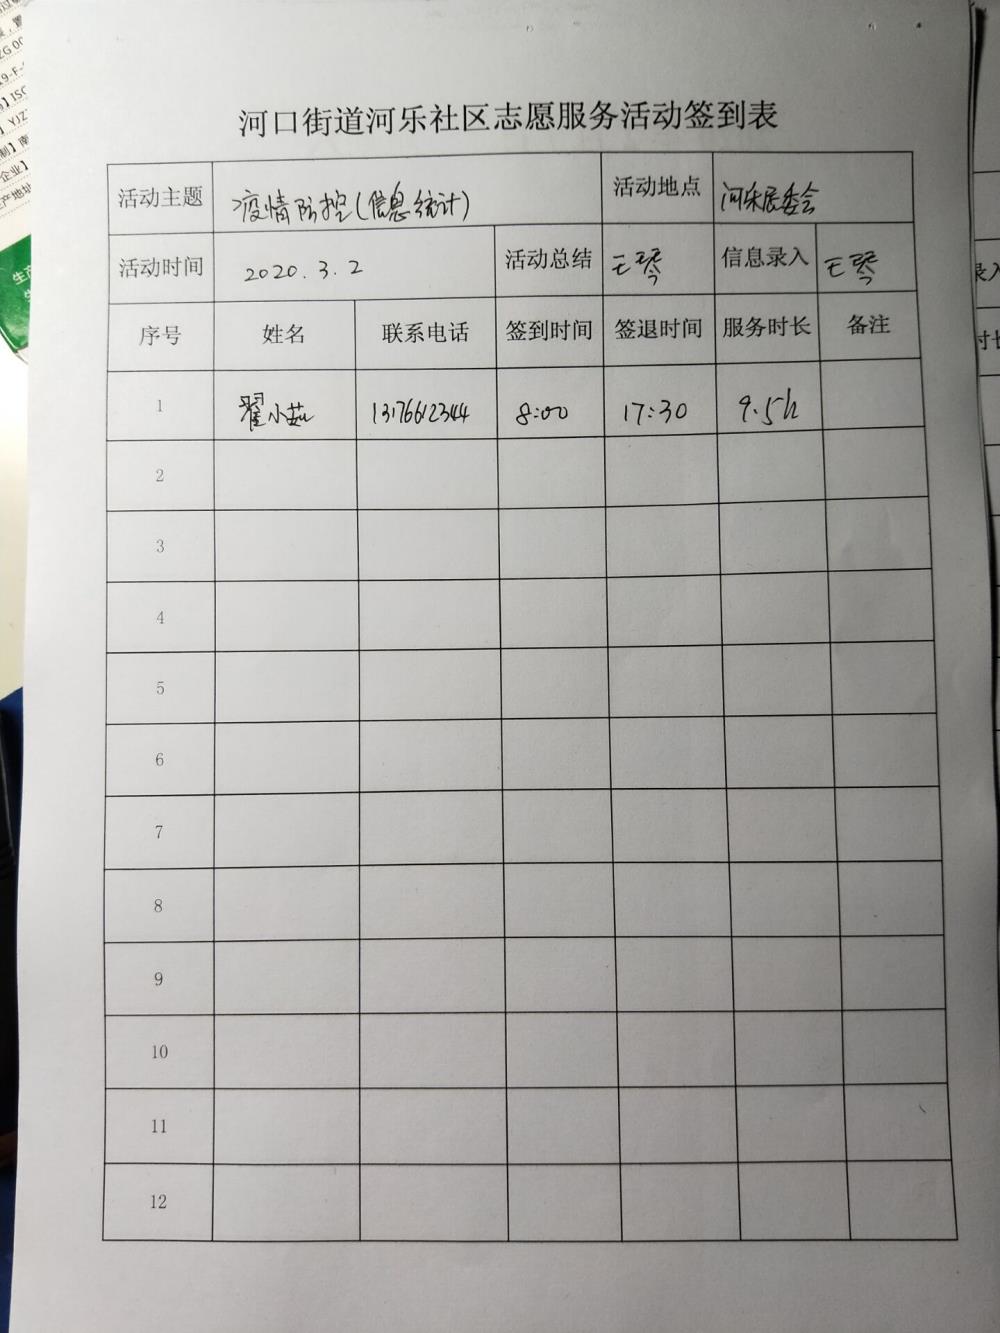 河口街道河乐社区志愿服务活动签到表
活动主题 疫情防控(信息统计) 活动地点 河乐居委会
活动时间 2020.3.2 活动总结 王琴 信息录入 王琴
序号 姓名 联系电话 签到时间 签退时间 服务时长 备注
1 翟小茹 13176612344 8:00 17:30 9.5h
2
3
4
5
6
7
8
9
10
11
12